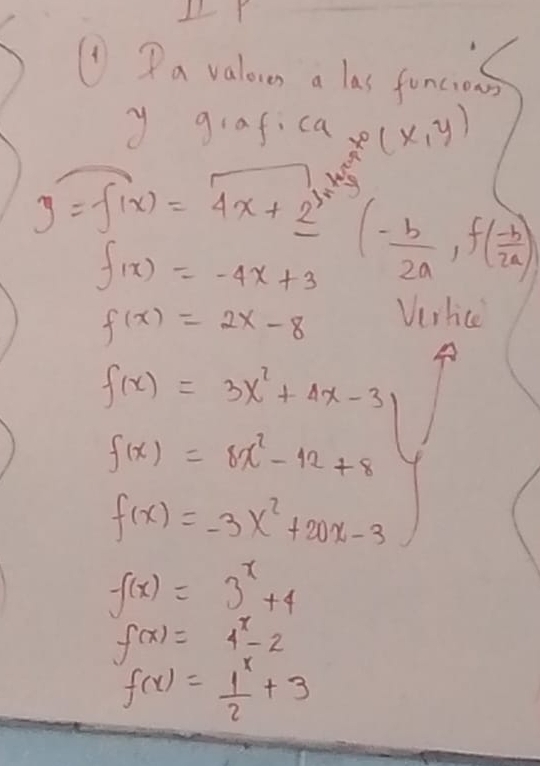 II P
① Da valores a las funciones
y grafica (x,y)
y = f(x) = 4x + 2 Intercepto y
(-b/2a, f(-b/2a))
f(x) = -4x + 3
Vertice
f(x) = 2x - 8
f(x) = 3x² + 4x - 3
f(x) = 8x² - 12 + 8
f(x) = -3x² + 20x - 3
f(x) = 3^x + 4
f(x) = 4^x - 2
f(x) = 1^x/2 + 3